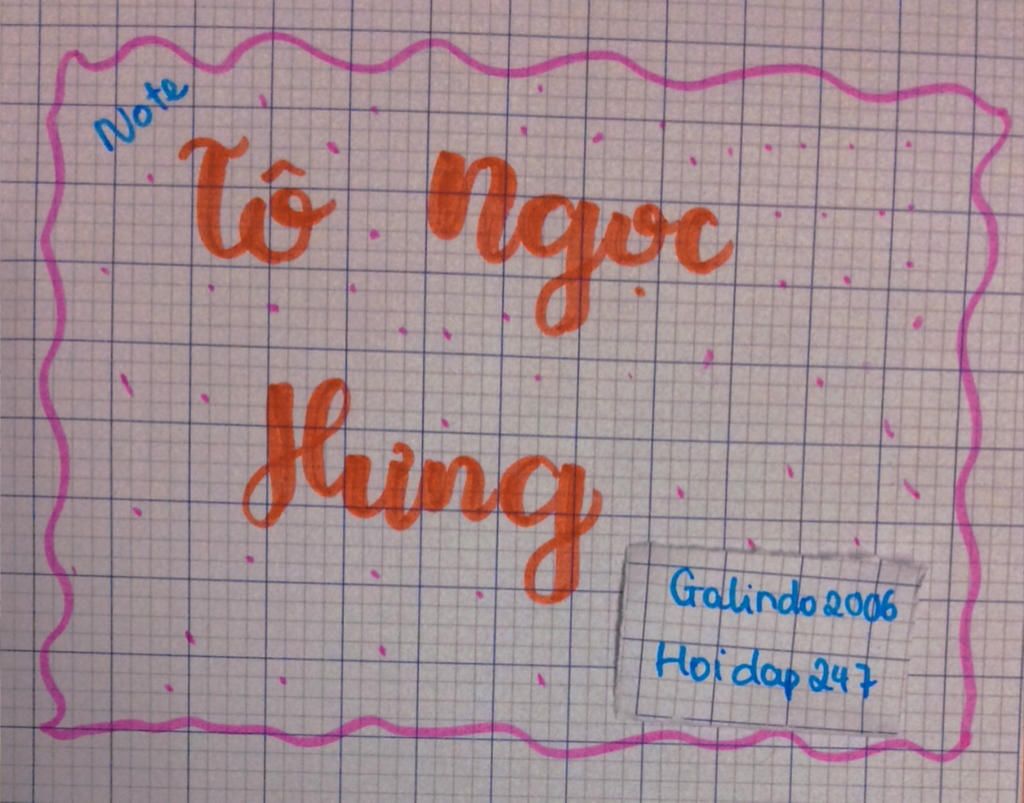 Note
Tô Ngọc
Hưng
Galindo2006
Hoidap247